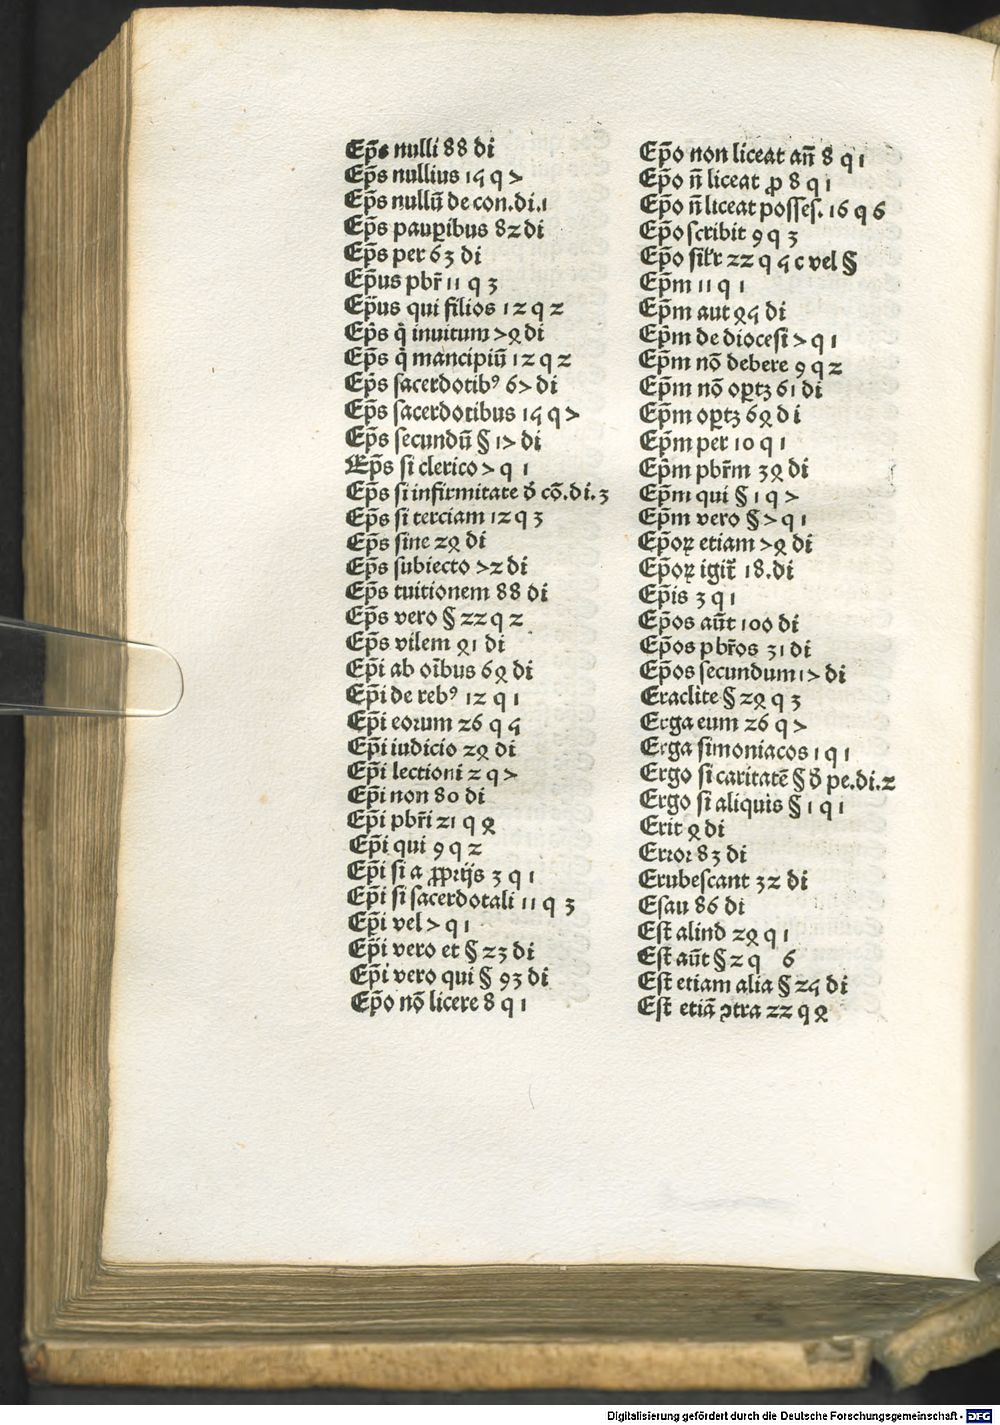 Ep̄s nulli 88 di
Ep̄s nullius 15 q 7
Ep̄s nullū de con.di.1
Ep̄s pauꝑibus 82 di
Ep̄s per 63 di
Ep̄us pbr̄ 11 q 3
Ep̄us qui filios 12 q 2
Ep̄s q̇ inuitum 74 di
Ep̄s q̇ mancipiū 12 q 2
Ep̄s sacerdotibꝰ 67 di
Ep̄s sacerdotibus 15 q 7
Ep̄s secundū § 17 di
Ep̄s si clerico 7 q 1
Ep̄s si infirmitate ď cō.di.3
Ep̄s si terciam 12 q 3
Ep̄s sine 24 di
Ep̄s subiecto 72 di
Ep̄s tuitionem 88 di
Ep̄s vero § 22 q 2
Ep̄s vilem 41 di
Ep̄i ab oībus 64 di
Ep̄i de rebꝰ 12 q 1
Ep̄i eorum 26 q 5
Ep̄i iudicio 24 di
Ep̄i lectioni 2 q 7
Ep̄i non 80 di
Ep̄i pbr̄i 21 q 4
Ep̄i qui 9 q 2
Ep̄i si a ꝓprijs 3 q 1
Ep̄i si sacerdotali 11 q 3
Ep̄i vel 7 q 1
Ep̄i vero et § 23 di
Ep̄i vero qui § 93 di
Ep̄o nō licere 8 q 1
Ep̄o non liceat añ 8 q 1
Ep̄o ñ liceat ꝓ 8 q 1
Ep̄o ñ liceat posses. 16 q 6
Ep̄o scribit 9 q 3
Ep̄o sil'r 22 q 5 c vel §
Ep̄m 11 q 1
Ep̄m aut 45 di
Ep̄m de diocesi 7 q 1
Ep̄m nō debere 9 q 2
Ep̄m nō oꝑtꝫ 61 di
Ep̄m oꝑtꝫ 64 di
Ep̄m per 10 q 1
Ep̄m pbr̄m 34 di
Ep̄m qui § 1 q 7
Ep̄m vero § 7 q 1
Ep̄oꝝ etiam 74 di
Ep̄oꝝ igit̄ 18.di
Ep̄is 3 q 1
Ep̄os aūt 100 di
Ep̄os pbr̄os 31 di
Ep̄os secundum 17 di
Eraclite § 24 q 3
Erga eum 26 q 7
Erga simoniacos 1 q 1
Ergo si caritatē § ď pe.di.2
Ergo si aliquis § 1 q 1
Erit 4 di
Error 83 di
Erubescant 32 di
Esau 86 di
Est alind 24 q 1
Est aūt § 2 q 6
Est etiam alia § 25 di
Est etiā ꝯtra 22 q 4
Digitalisierung gefördert durch die Deutsche Forschungsgemeinschaft - DFG